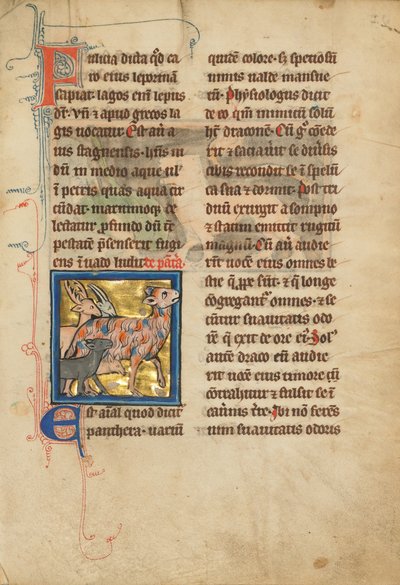 Fulicia dicta qđ ca
ro eius leporinā
sapiat· lagos enī lepus
dr̄· vn̄ ⁊ apud grecos la
gis uocatur· Est aūt a
uis stagnensis· hn̄s ni
dum in medio aque uł
in petris quas aqua cir
cūdat· maritimoqꝫ de
lectatur ꝓfundo· dū tē
pestatē p̄senserit fugi
ens ī uado ludit· de pāt̄a·
Est aīal quod dicit᷑
panthera· uariū
quitē colore· sꝫ speciosū
nimis ualde mansue
tū· Phisiologus dicit
de eo qm̄ inimicū solū
hꝫ draconē· Cū gͦ cōede
rit ⁊ saciaūit se diuſis
cibis recondit se ī spelū
ca sua ⁊ dormit· Post tri
duū erurgit a sompno
⁊ statim emittit rugitū
magnū· Cū aūt audie
rīt uocē eius omnes be
stie q̄ ꝓpe sūt· ⁊ q̄ longe
cōgregant᷑ omnes· ⁊ se
cūtur suauitatis odo
rē q̄ exit de ore eiꝰ· Solꝰ
autē draco cū audie
rit uocē eius timore cū
cōtrahitur ⁊ fulsit se ī
cau̅nis t̄re· Ibi nō ferēs
uim suauitatis odoris